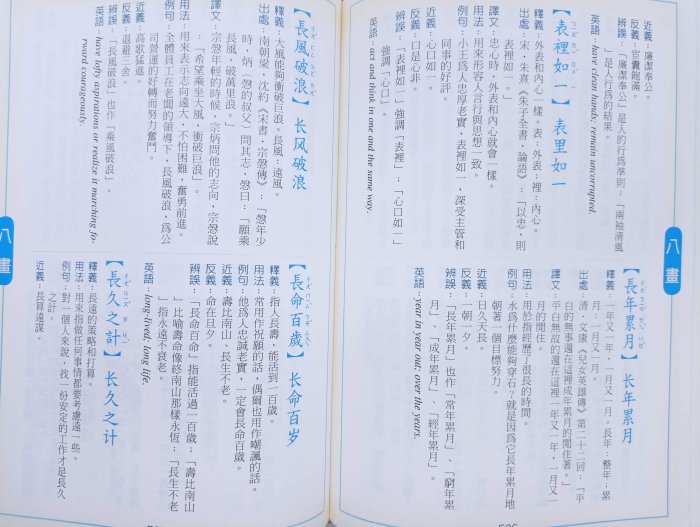 近義：廉潔奉公。
反義：宦囊飽滿。
辨誤：「廉潔奉公」是人的行為準則；「兩袖清風
」是人行為的結果。
英語：have clean hands; remain uncorrupted.
【表裡如一】表里如一
釋義：外表和內心一樣。表：外表；裡：內心。
出處：宋．朱熹《朱子全書．論語》：「以忠，則
表裡如一。」
譯文：忠心時，外表和內心就會一樣。
用法：用來形容人言行與思想一致。
例句：小王為人忠厚老實，表裡如一，深受主管和
同事的好評。
近義：心口如一。
反義：口是心非。
辨誤：「表裡如一」強調「表裡」；「心口如一」
強調「心口」。
英語：act and think in one and the same way.
【長年累月】长年累月
釋義：一年又一年，一月又一月。長年：整年；累
月：一月又一月。
出處：清．文康《兒女英雄傳》第二十二回：「平
白的無事還在這裡成年累月的閒住著。」
譯文：平白無故的還在這裡一年又一年，一月又一
月的閒住。
用法：用於指經歷了很長的時間。
例句：水為什麼能夠穿石？就是因為它長年累月地
朝著一個目標努力。
近義：日久天長。
反義：一朝一夕。
辨誤：「長年累月」也作「常年累月」、「窮年累
月」、「成年累月」、「經年累月」。
英語：year in year out; over the years.
八畫
【長風破浪】长风破浪
釋義：大風能夠衝破巨浪。長風：遠風。
出處：南朝梁．沈約《宋書．宗愨傳》：「愨年少
時，炳（愨的叔父）問其志，愨曰：『願乘
長風，破萬里浪。』」
譯文：宗愨年輕的時候，宗炳問他的志向，宗愨說
：「希望乘坐大風，衝破巨浪。」
用法：用來表示志向遠大，不怕困難，奮勇前進。
例句：全體員工在老闆的領導下，長風破浪，為公
司營運的好轉而努力奮鬥。
近義：高歌猛進。
反義：退避三舍。
辨誤：「長風破浪」也作「乘風破浪」。
英語：have lofty aspirations or realize it marching fo-
rward courageously.
【長命百歲】长命百岁
釋義：指人長壽，能活到一百歲。
用法：常用作祝願的話，偶爾也用作嘲諷的話。
例句：他為人忠誠老實，一定會長命百歲。
近義：壽比南山、長生不老。
反義：命在旦夕。
辨誤：「長命百歲」指能活過一百歲；「壽比南山
」比喻壽命像終南山那樣永恆；「長生不老
」指永遠不衰老。
英語：long-lived; long life.
【長久之計】长久之计
釋義：長遠的策略和打算。
用法：用來指做任何事情都要考慮遠一些。
例句：對一個人來說，找一份安定的工作才是長久
之計。
近義：長算遠謀。
八畫